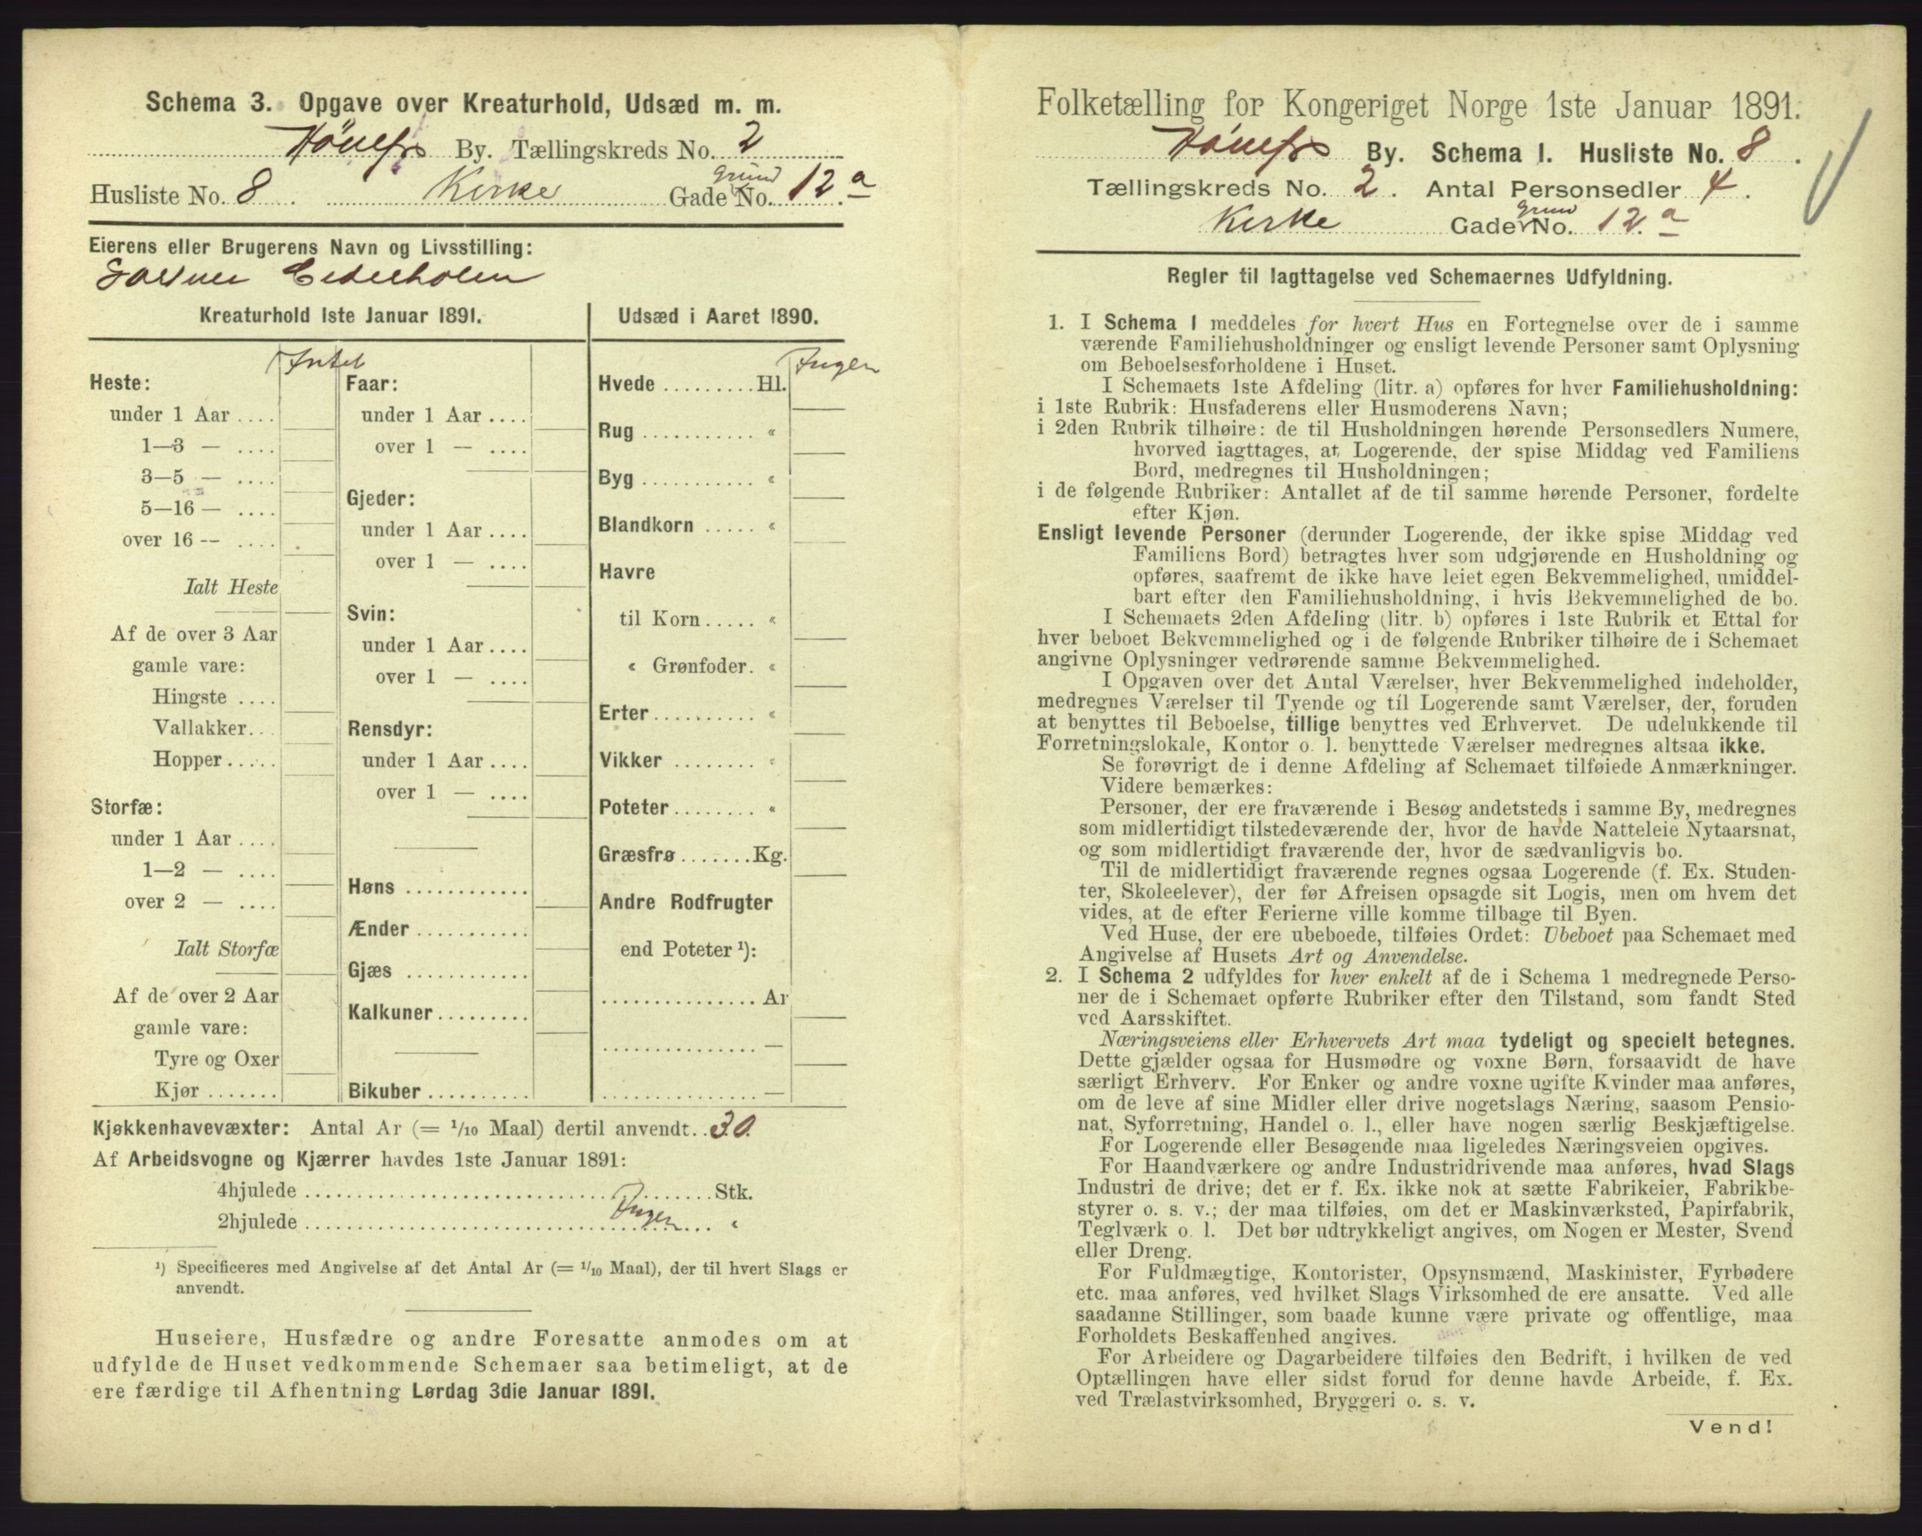 Schema 3. Opgave over Kreaturhold, Udsæd m. m.
Hönefos By. Tællingskreds No. 2
Husliste No. 8. Kirke Gade Grund No. 12.a
Eierens eller Brugerens Navn og Livsstilling:
Cederholm
Kreaturhold 1ste Januar 1891.
Heste:
under 1 Aar ....
1—3 — ....
3—5 — ....
5—16 — ....
over 16 — ....
Ialt Heste
Af de over 3 Aar
gamle vare:
Hingste ....
Vallakker...
Hopper.....
Storfæ:
under 1 Aar ....
1—2 — ....
over 2 — ....
Ialt Storfæ
Af de over 2 Aar
gamle vare:
Tyre og Oxer
Kjør .......
Faar:
under 1 Aar ....
over 1 — ....
Gjeder:
under 1 Aar ....
over 1 — ....
Svin:
under 1 Aar ....
over 1 — ....
Rensdyr:
under 1 Aar ....
over 1 — ....
Høns ............
Ænder ...........
Gjæs ............
Kalkuner.........
Bikuber ..........
Udsæd i Aaret 1890.
Ingen
Hvede .........Hl.
Rug ........... «
Byg ........... «
Blandkorn ..... «
Havre
til Korn..... «
« Grønfoder. «
Erter.......... «
Vikker ........ «
Poteter........ «
Græsfrø.......Kg.
Andre Rodfrugter
end Poteter ¹):
............... Ar
............... —
............... —
Kjøkkenhavevæxter: Antal Ar (= 1/10 Maal) dertil anvendt.. 30.
Af Arbeidsvogne og Kjærrer havdes 1ste Januar 1891:
4hjulede ........................................Stk.
2hjulede .............................. Ingen ... «
¹) Specificeres med Angivelse af det Antal Ar (= 1/10 Maal), der til hvert Slags er
anvendt.
Huseiere, Husfædre og andre Foresatte anmodes om at
udfylde de Huset vedkommende Schemaer saa betimeligt, at de
ere færdige til Afhentning Lørdag 3die Januar 1891.
Folketælling for Kongeriget Norge 1ste Januar 1891.
Hönefos By. Schema 1. Husliste No. 8.
Tællingskreds No. 2. Antal Personsedler 4.
Kirke Gade Grund No. 12.a
Regler til Iagttagelse ved Schemaernes Udfyldning.
1. I Schema 1 meddeles for hvert Hus en Fortegnelse over de i samme
værende Familiehusholdninger og ensligt levende Personer samt Oplysning
om Beboelsesforholdene i Huset.
I Schemaets 1ste Afdeling (litr. a) opføres for hver Familiehusholdning:
i 1ste Rubrik: Husfaderens eller Husmoderens Navn;
i 2den Rubrik tilhøire: de til Husholdningen hørende Personsedlers Numere,
hvorved iagttages, at Logerende, der spise Middag ved Familiens
Bord, medregnes til Husholdningen;
i de følgende Rubriker: Antallet af de til samme hørende Personer, fordelte
efter Kjøn.
Ensligt levende Personer (derunder Logerende, der ikke spise Middag ved
Familiens Bord) betragtes hver som udgjørende en Husholdning og
opføres, saafremt de ikke have leiet egen Bekvemmelighed, umiddel-
bart efter den Familiehusholdning, i hvis Bekvemmelighed de bo.
I Schemaets 2den Afdeling (litr. b) opføres i 1ste Rubrik et Ettal for
hver beboet Bekvemmelighed og i de følgende Rubriker tilhøire de i Schemaet
angivne Oplysninger vedrørende samme Bekvemmelighed.
I Opgaven over det Antal Værelser, hver Bekvemmelighed indeholder,
medregnes Værelser til Tyende og til Logerende samt Værelser, der, foruden
at benyttes til Beboelse, tillige benyttes ved Erhvervet. De udelukkende til
Forretningslokale, Kontor o. l. benyttede Værelser medregnes altsaa ikke.
Se forøvrigt de i denne Afdeling af Schemaet tilføiede Anmærkninger.
Videre bemærkes:
Personer, der ere fraværende i Besøg andetsteds i samme By, medregnes
som midlertidigt tilstedeværende der, hvor de havde Natteleie Nytaarsnat,
og som midlertidigt fraværende der, hvor de sædvanligvis bo.
Til de midlertidigt fraværende regnes ogsaa Logerende (f. Ex. Studen-
ter, Skoleelever), der før Afreisen opsagde sit Logis, men om hvem det
vides, at de efter Ferierne ville komme tilbage til Byen.
Ved Huse, der ere ubeboede, tilføies Ordet: Ubeboet paa Schemaet med
Angivelse af Husets Art og Anvendelse.
2. I Schema 2 udfyldes for hver enkelt af de i Schema 1 medregnede Perso-
ner de i Schemaet opførte Rubriker efter den Tilstand, som fandt Sted
ved Aarsskiftet.
Næringsveiens eller Erhvervets Art maa tydeligt og specielt betegnes.
Dette gjælder ogsaa for Husmødre og voxne Børn, forsaavidt de have
særligt Erhverv. For Enker og andre voxne ugifte Kvinder maa anføres,
om de leve af sine Midler eller drive nogetslags Næring, saasom Pensio-
nat, Syforretning, Handel o. l., eller have nogen særlig Beskjæftigelse.
For Logerende eller Besøgende maa ligeledes Næringsveien opgives.
For Haandværkere og andre Industridrivende maa anføres, hvad Slags
Industri de drive; det er f. Ex. ikke nok at sætte Fabrikeier, Fabrikbe-
styrer o. s. v.; der maa tilføies, om det er Maskinværksted, Papirfabrik,
Teglværk o. l. Det bør udtrykkeligt angives, om Nogen er Mester, Svend
eller Dreng.
For Fuldmægtige, Kontorister, Opsynsmænd, Maskinister, Fyrbødere
etc. maa anføres, ved hvilket Slags Virksomhed de ere ansatte. Ved alle
saadanne Stillinger, som baade kunne være private og offentlige, maa
Forholdets Beskaffenhed angives.
For Arbeidere og Dagarbeidere tilføies den Bedrift, i hvilken de ved
Optællingen have eller sidst forud for denne havde Arbeide, f. Ex.
ved Trælastvirksomhed, Bryggeri o. s. v.
Vend!